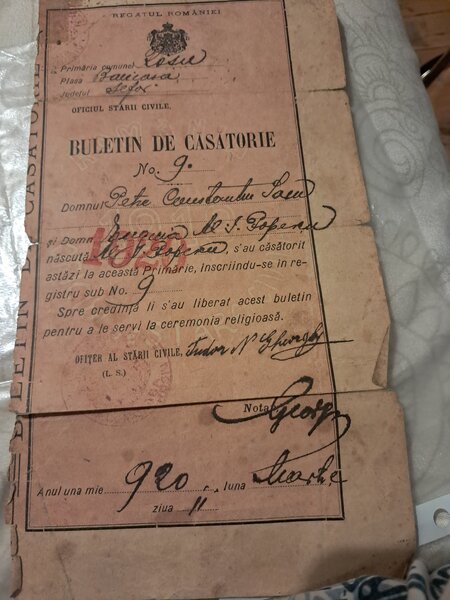 REGATUL ROMÂNIEI
Primăria comunei
Plasa
Judeţul Ilfov
OFICIUL STĂRII CIVILE,
BULETIN DE CĂSĂTORIE
No. 9.
Domnul Petre
şi Domna Eugenia M. I. Popescu
născută M. I. Popescu, s'au căsătorit
astăzi la această Primărie, înscriindu-se în re-
gistru sub No. 9
Spre credinţă li s'au liberat acest buletin
pentru a le servi la ceremonia religioasă.
OFIŢER AL STĂRII CIVILE, Tudor N. Gheorghe
(L. S.)
Notar
Anul una mie 920, luna Martie
ziua 11